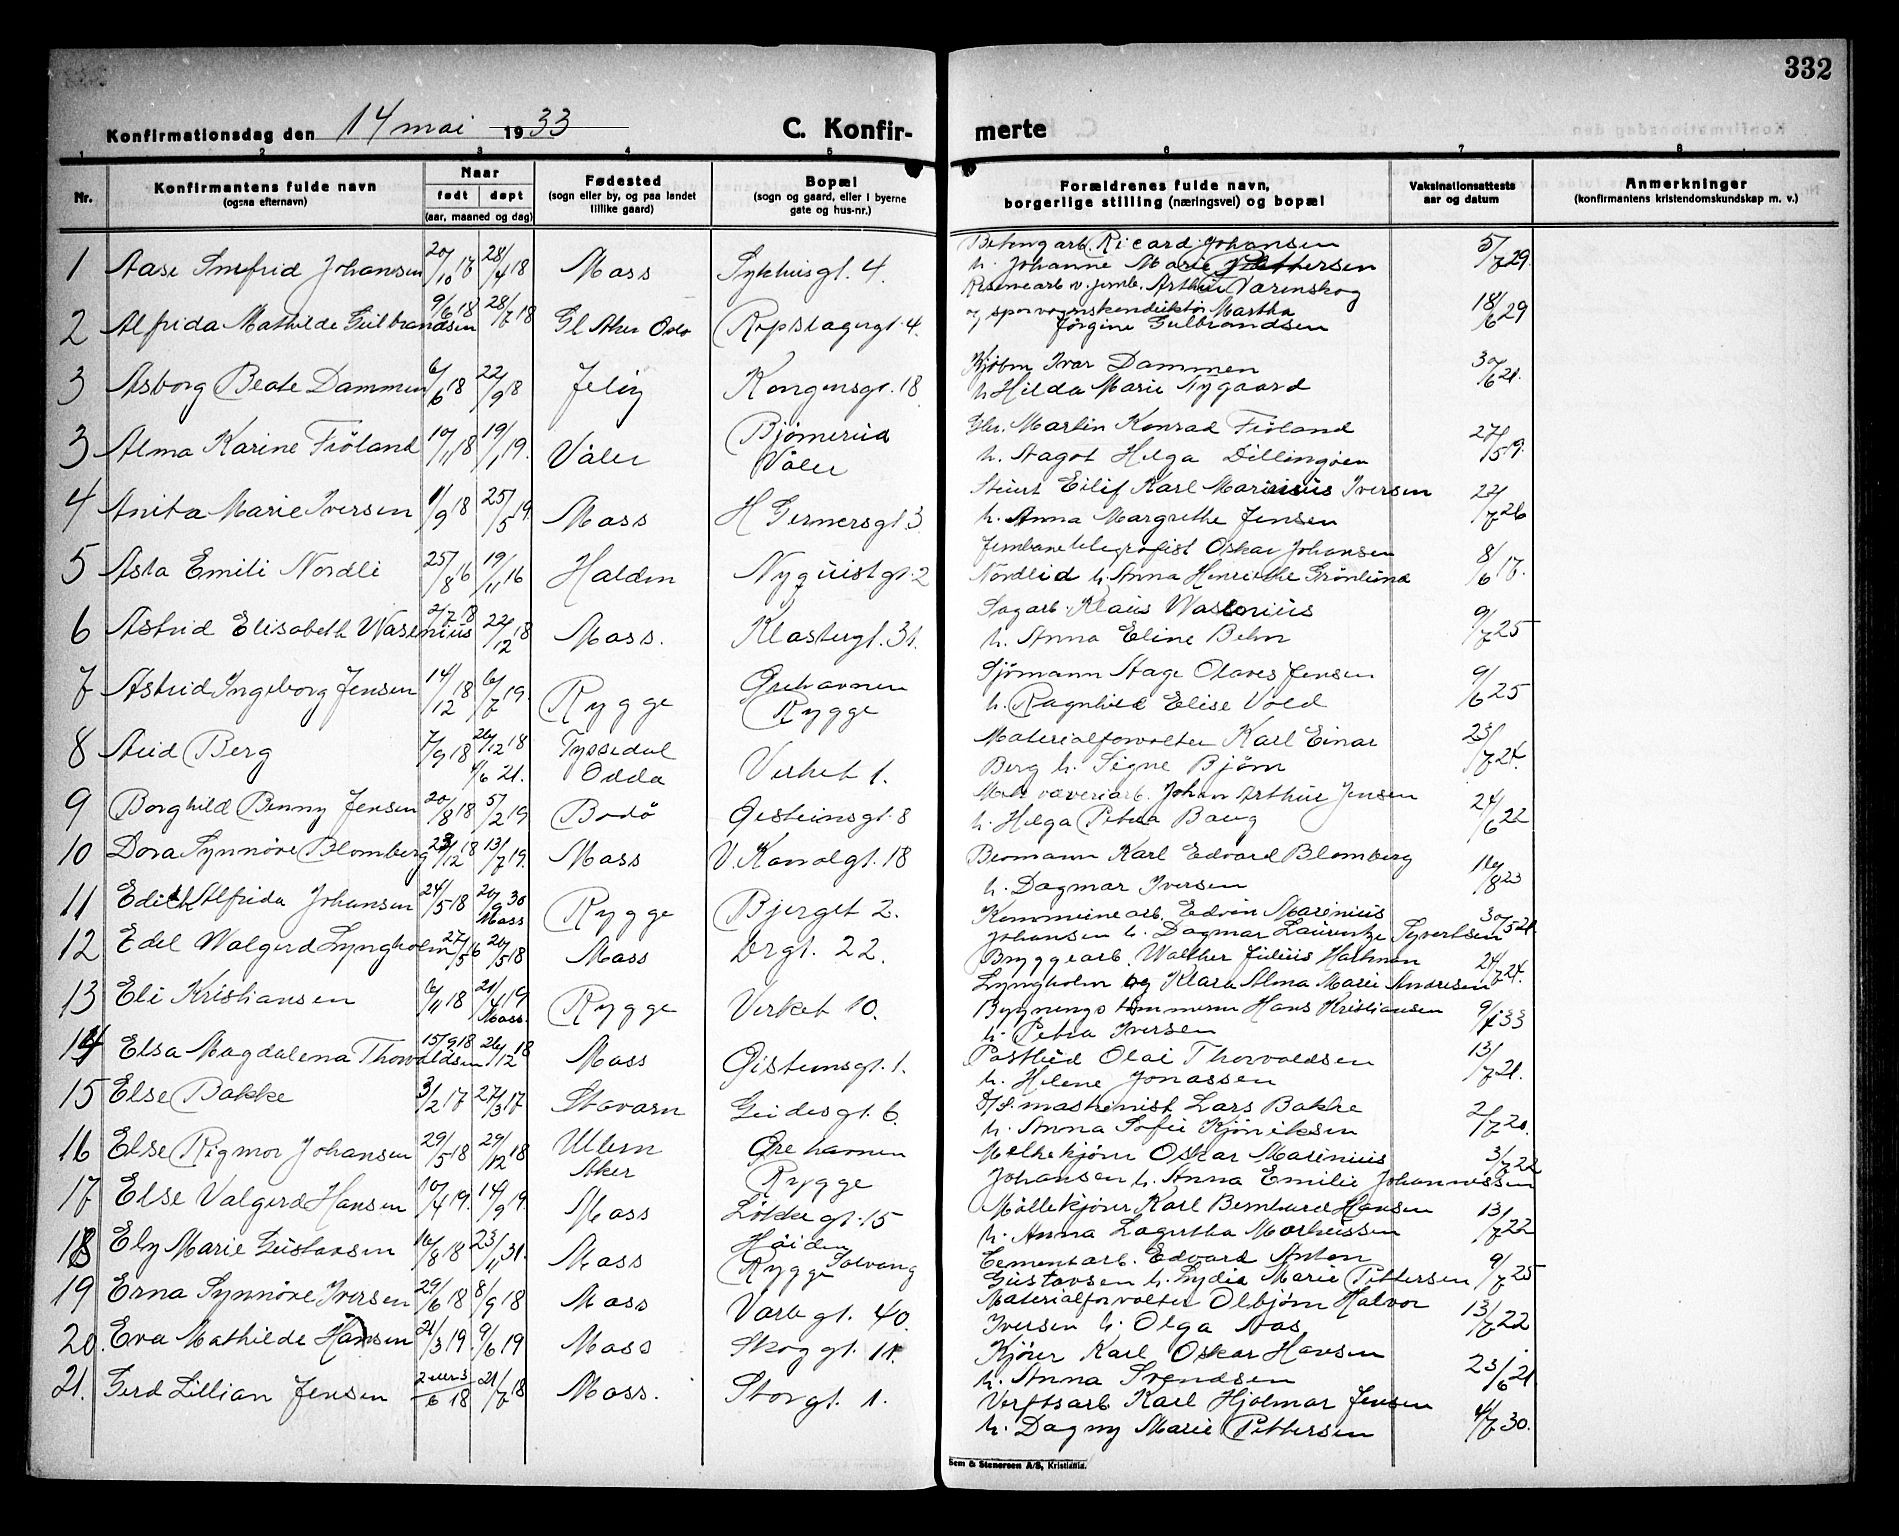 332
Konfirmationsdag den 14 mai 1933
C. Konfir- merte
1 2 3 4 5 6 7 8
Nr. Konfirmantens fulde navn (ogsaa efternavn) Naar født døpt (aar, maaned og dag) Fødested (sogn eller by, og paa landet tillike gaard) Bopæl (sogn og gaard, eller i byerne gate og hus-nr.) Forældrenes fulde navn, borgerlige stilling (næringsvei) og bopæl Vaksinationsattests aar og datum Anmerkninger (konfirmantens kristendomskundskap m. v.)
1 Aase Smefrid Johansen 20/10 17 28/4 18 Moss Sykhusgt. 4. Betongarb. Ricard Johansen 5/7 29.
h. Johanne Marie Pettersen
2 Alfrida Mathilde Gulbrandsen 9/6 18 28/7 18 Gl Aker Oslo Repslagergt. 4. v. jernb. Arthur Varenskog 18/6 29
og sporvognskonduktør Martha
Jørgine Gulbrandsen
3 Asborg Beate Dammen 6/6 18 22/9 18 Jeløy Kongensgt. 18 Kjøbm Ivar Dammen 30/6 21.
h. Hilda Marie Nygaard
3 Alma Karine Fröland 10/11 18 19/1 19. Våler Bjørnerud Våler Gbr. Martin Konrad Fröland 27/5 19.
h. Aagot Helga Dillingøen
4 Anita Marie Iversen 11/9 18 25/5 19. Moss H Germersgt 3 Stuert Eilif Karl Marinius Iversen 22/7 26
h. Anna Margrethe Jensen
5 Asta Emili Nordli 25/8 16 19/11 16 Halden Nyquistgt. 2 Jernbanetelegrafist Oskar Johansen 8/6 17.
Nordlid h. Anna Henriette Grönlund
6 Astrid Elisabeth Wasenius 2/7 18 22/12 18 Moss. Klostergt. 31. Sagarb. Klaus Wasenius 9/7 25
h. Anna Eline Behn
7 Astrid Ingeborg Jensen 14/12 18 6/7 19. Rygge Ørehavnen Rygge Sjömann Aage Olaves Jensen 9/6 25
h. Ragnhild Elise Vold
8 Aud Berg 7/9 18 26/12 18 4/6 21. Tyssedal Odda Verket 1. Materialforvalter Karl Einar 23/7 24.
Berg h. Signe Bjørn
9 Borghild Benny Jensen 20/8 18 5/2 19 Bodö Øesteinsgt. 8 Mek væveriarb. Johan Arthur Jensen 24/6 22
h. Helga Petra Baug
10 Dora Synnöve Blomberg 23/12 18 13/7 19. Moss V. Kanalgt. 18 Bromann Karl Edvard Blomberg 16/8 23
h. Dagmar Iversen
11 Edith Alfrida Johansen 24/5 18 20/9 30 Moss Rygge Bjerget 2. Kommunearb. Edvin Marinius 30/5 21.
Johansen h. Dagmar Laurentze Syvertsen
12 Edel Walgerd Lyngholm 27/5 16 20/5 18 Moss Drgt. 22. Bryggearb. Walther Julius Hartman 24/7 24.
Lyngholm og Klara Alma Marie Andresen
13 Eli Kristiansen 6/11 18 21/4 19 Moss. Rygge Verket 10. Bygningstømmerm Hans Kristiansen 9/1 33
h. Petra Iversen
14 Elsa Magdalena Thorvaldsen 15/9 18 26/12 18 Moss Øisteinsgt. 1. Postbud Olai Thorvaldsen 13/7 21.
h. Helene Jonassen
15 Else Bakke 3/2 17 27/3 17 Stavarn Geidesgt. 6 D/S. maskinist Lars Bakke 2/7 20.
h. Anna Sofie Kjöniksen
16 Else Rigmor Johansen 29/5 18 29/12 18 Ullern Aker Ørehavnen Rygge Melkekjører Oskar Marinius 3/7 22
Johansen h. Anna Emilie Johannessen
17 Else Valgerd Hansen 10/4 19. 14/9 19. Moss Løkkegt. 15 Møllekjører Karl Bernhard Hansen 13/7 22
h. Anna Lagertha Markussen
18 Ely Marie Gustavsen 16/8 18 23/11 31. Moss Høiden Rygge Solvang Cementarb. Edvard Anton 9/7 25
Gustavsen h. Lydia Marie Pettersen
19 Erna Synnöve Iversen 29/6 18 8/9 18 Moss Varbgt. 40. Materialforvalter Olbjørn Halvor 13/7 22
Iversen h. Olga Aas
20. Eva Mathilde Hansen 21/3 19. 9/6 19 Moss Skoggt. 11. Kjører Karl Oskar Hansen 23/6 21
h. Anna Svendsen
21. Gerd Lillian Jensen 2/6 18 21/7 18 Moss. Storgt. 1. Verftsarb Karl Hjalmar Jensen 4/7 30.
h. Dagny Marie Pettersen
Sem & Stenersen A/S, Kristiania.